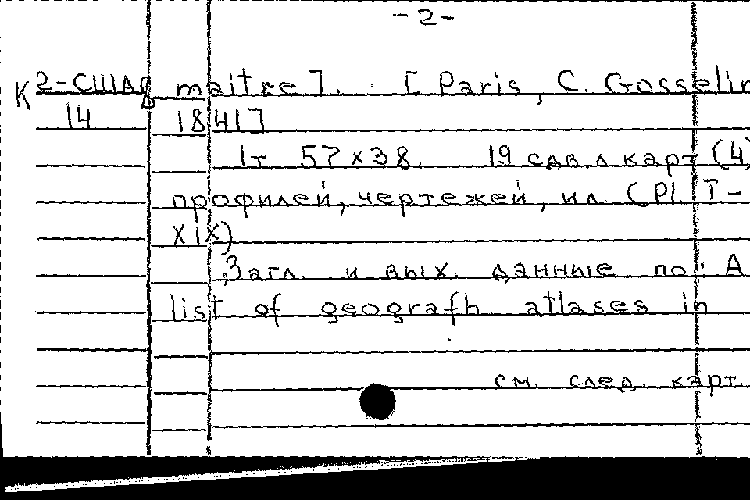 -2-
К 2-США8 maitre]. [Paris, C. Gosselin
14 1841]
1т 57x38. 19 сдв. л карт (4)
профилей, чертежей, ил (Pl I-
XIX)
Загл. и вых. данные по: A
list of geografh atlases in
см. след. карт.